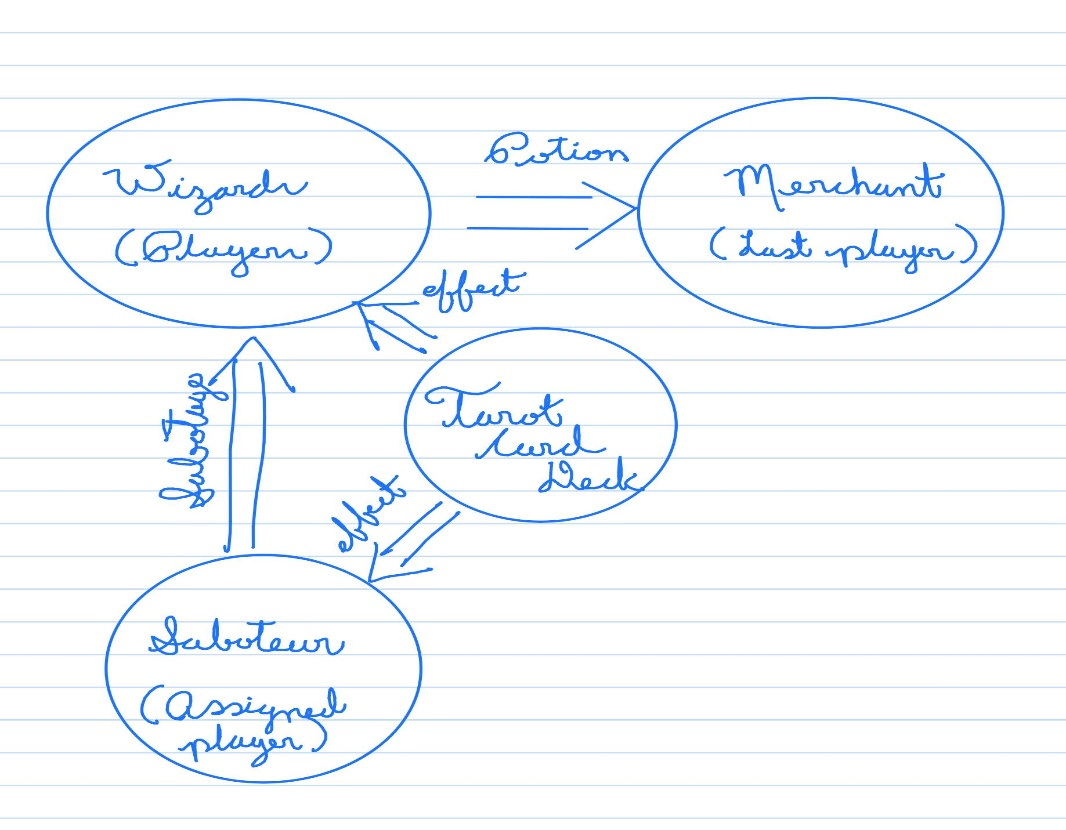 Wizards
(Players)
Potion
Merchant
(Last player)
effect
Tarot
Card
Deck
Sabotage
effect
Saboteur
(Assigned
player)